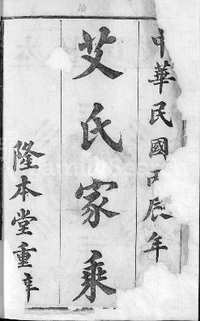 中華民國辰年
艾氏家乘
隆本堂重梓